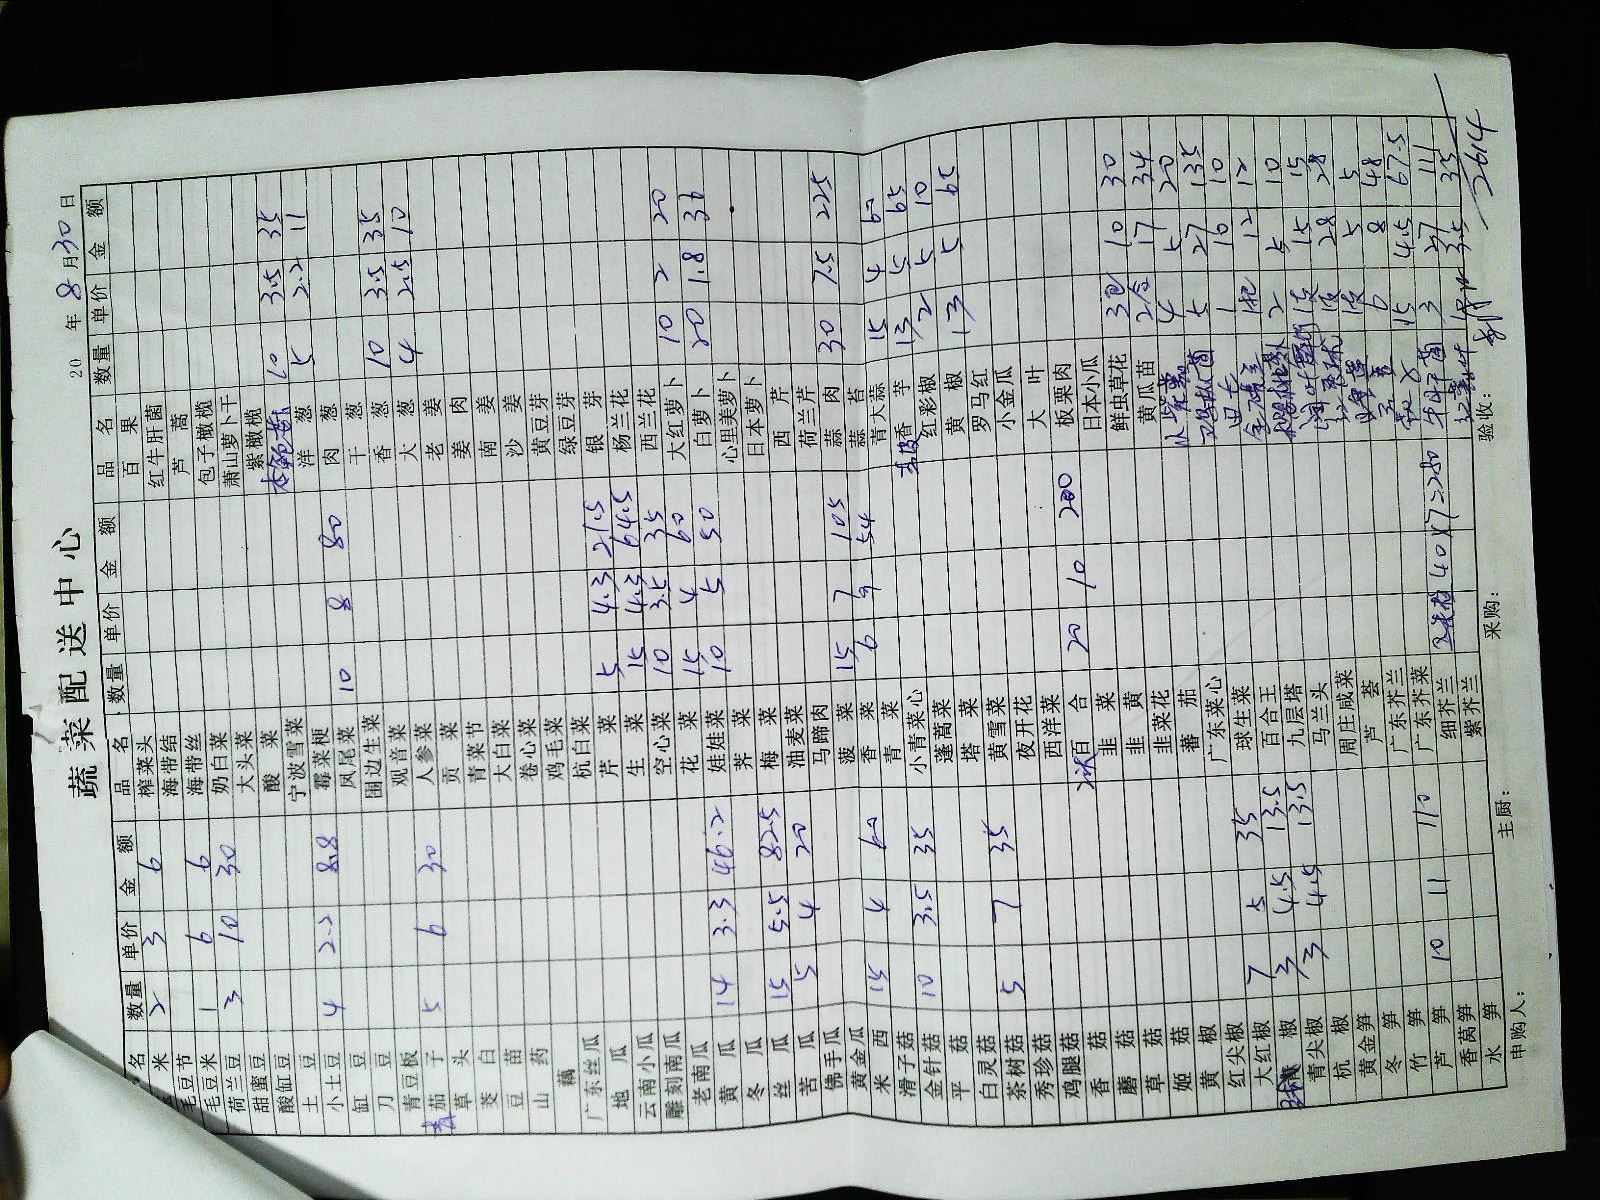 蔬菜配送中心
20 年 8 月 30 日
名 数量 单价 金额 品名 数量 单价 金额 品名 数量 单价 金额
米 2 3 6 榨菜头 百果
毛豆节 海带结 红牛肝菌
毛豆米 1 6 6 海带丝 芦蒿
荷兰豆 3 10 30 奶白菜 包子橄榄
甜蜜豆 大头菜 萧山萝卜干
酸缸豆 酸菜 紫橄榄
土豆 宁波雪菜 10 3.5 35
小土豆 4 2.2 8.8 霉菜梗 洋葱 5 2.2 11
缸豆 凤尾菜 10 8 80 肉葱
刀豆 围边生菜 干葱
青豆板 观音菜 香葱 10 3.5 35
茄子 5 6 30 人参菜 大葱 4 2.5 10
草头 贡菜 老姜
茭白 青菜节 姜肉
豆苗 大白菜 南姜
山药 卷心菜 沙姜
藕 鸡毛菜 黄豆芽
广东丝瓜 杭白菜 绿豆芽
地瓜 芹菜 5 4.3 21.5 银芽
云南小瓜 生菜 15 4.3 64.5 杨兰花
雕刻南瓜 空心菜 10 3.5 35 西兰花
老南瓜 花菜 15 4 60 大红萝卜 10 2 20
黄瓜 14 3.3 46.2 娃娃菜 10 5 50 白萝卜 20 1.8 36
冬瓜 荠菜 心里美萝卜
丝瓜 15 5.5 82.5 梅菜 日本萝卜
苦瓜 5 4 20 油麦菜 西芹
佛手瓜 马蹄肉 荷兰芹
黄金瓜 菠菜 15 7 105 蒜肉 30 7.5 225
米西 15 4 60 香菜 6 9 54 蒜苔
滑子菇 青菜 青大蒜 15 4 60
金针菇 10 3.5 35 小青菜心 香芋 13 5 65
平菇 蓬蒿菜 红彩椒 2 5 10
白灵菇 塔菜 黄椒 13 5 65
茶树菇 5 7 35 黄雪菜 罗马红
秀珍菇 夜开花 小金瓜
鸡腿菇 西洋菜 大叶
香菇 百合 20 10 200 板栗肉
蘑菇 韭菜 日本小瓜
草菇 韭黄 鲜虫草花 3包 10 30
姬菇 韭菜花 黄瓜苗 2盒 17 34
黄椒 蕃茄 4 5 20
红尖椒 广东菜心 5 27 135
大红椒 7 5 35 球生菜 1 10 10
椒 3 4.5 13.5 百合王 12 12
青尖椒 3 4.5 13.5 九层塔 2 5 10
杭椒 马兰头 15 15
黄金笋 周庄咸菜 28 28
冬笋 芦荟 5 5
竹笋 广东芥兰 6 8 48
芦笋 10 11 110 广东芥菜 15 4.5 67.5
香莴笋 细芥兰 40×7=280 3 37 111
水笋 紫芥兰 35 35
申购人： 主厨： 采购： 验收： 2614